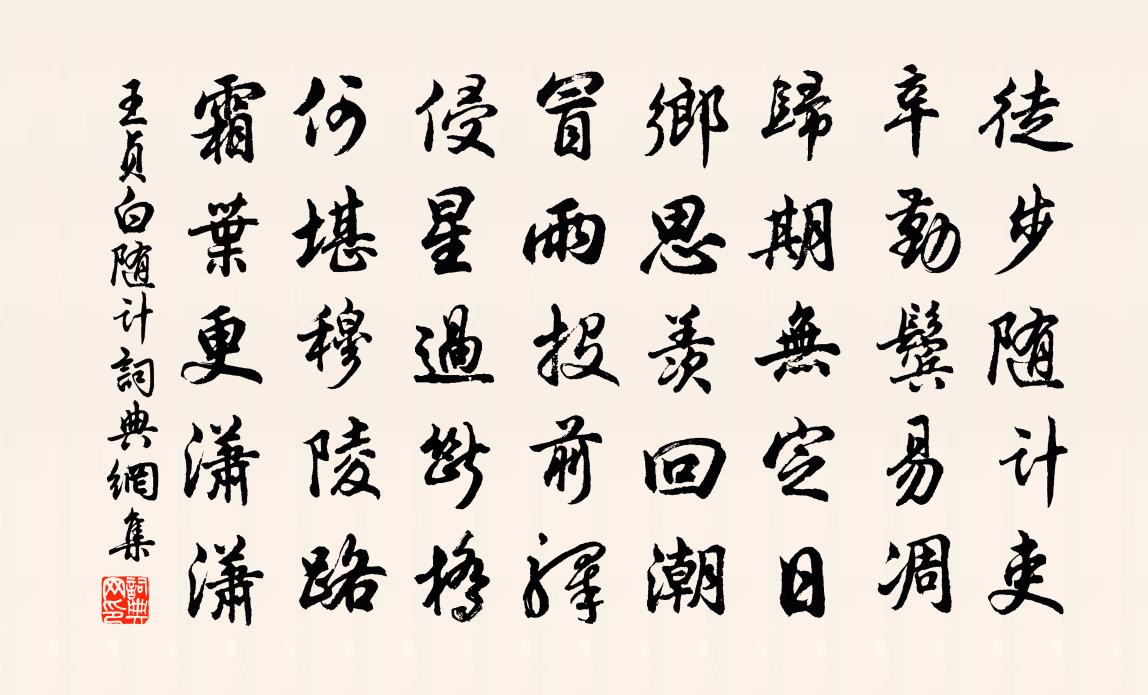 徒步随计吏
辛勤鬓易凋
歸期無定日
鄉思羨回潮
冒雨投前驛
侵星過斷橋
何堪穆陵路
霜葉更瀟瀟
王貞白随计詞典網集
詞典
网印